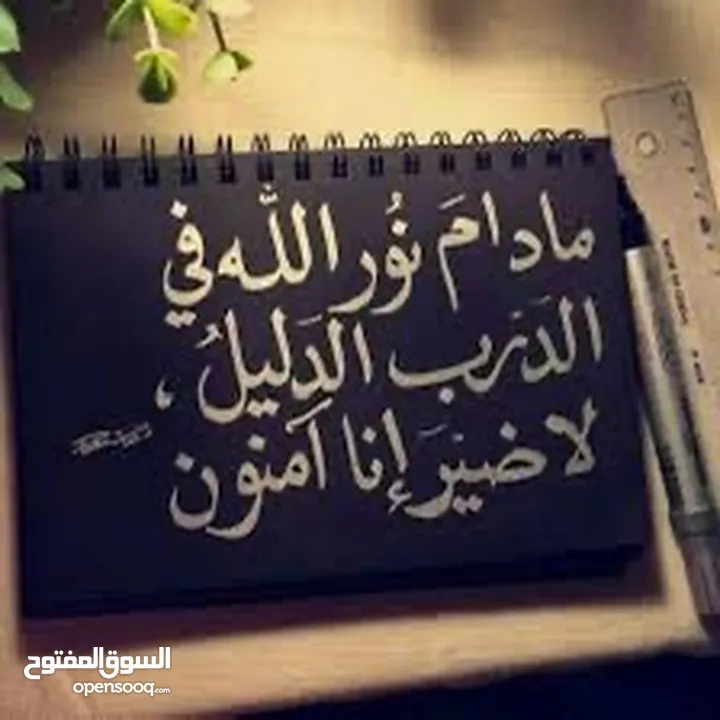 مادامَ نُور اللّه في
الدَرْب الدَليلُ ،
لا ضيْرَ إنا آمنون
السوق المفتوح
opensooq.com